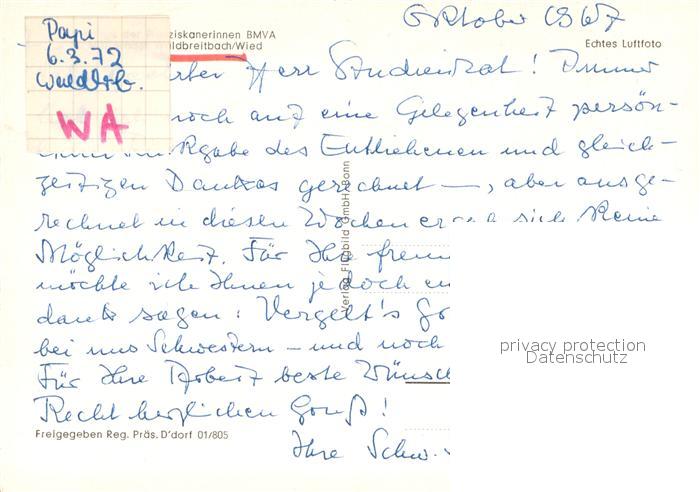 Oktober 1967
Papi
6.3.72
Waldbrb.
WA
ziskanerinnen BMVA
ldbreitbach/Wied
Echtes Luftfoto
Herr Studienrat! Immer
noch auf eine Gelegenheit persön-
gabe des Entliehenen und gleich-
zeitigen Dankes gerechnet —, aber ausge-
rechnet in diesen Wochen ergab sich keine
Möglichkeit. Für Ihre
möchte ich Ihnen jedoch
dank sagen: Vergelt's
bei uns Schwestern – und noch
Für Ihre Arbeit beste Wünsc
Recht herzlichen Gruß!
Ihre Schw.
Freigegeben Reg. Präs. D'dorf 01/805
Verlag Flugbild GmbH/Bonn
privacy protection
Datenschutz